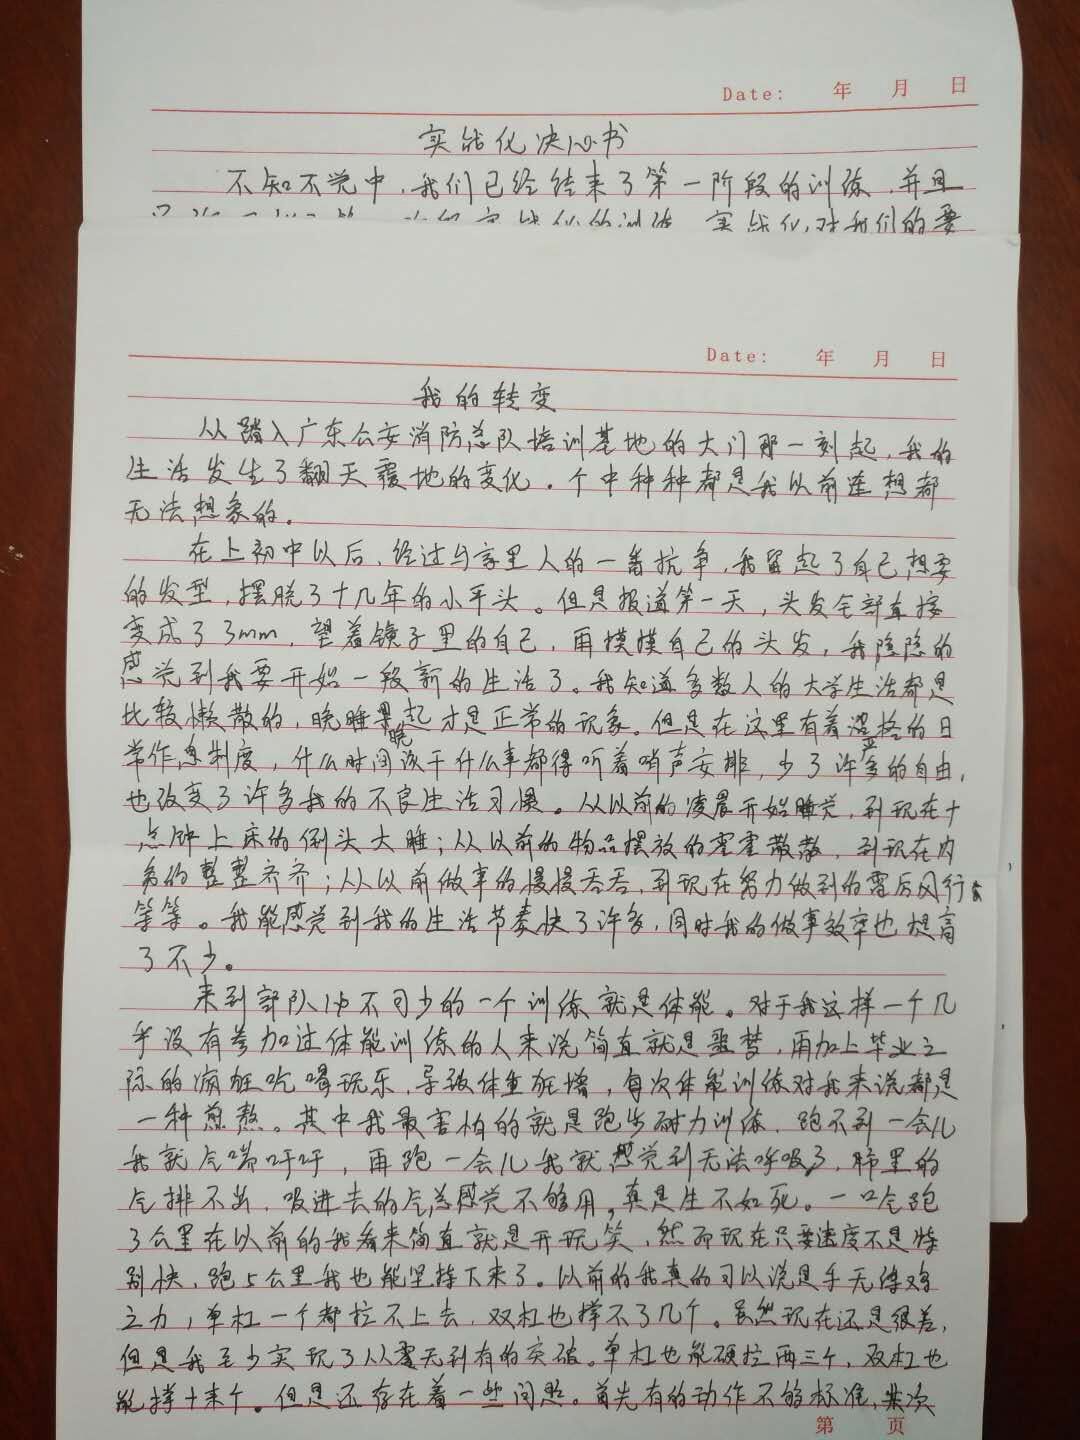 Date: 年 月 日
实战化决心书
不知不觉中，我们已经结束了第一阶段的训练，并且
实战化的训练，实战化对我们的要
Date: 年 月 日
我的转变
从踏入广东公安消防总队培训基地的大门那一刻起，我的
生活发生了翻天覆地的变化。个中种种都是我以前连想都
无法想象的。
在上初中以后，经过与家里人的一番抗争，我留起了自己想要
的发型，摆脱了十几年的小平头。但是报道第一天，头发全部直接
变成了3mm，望着镜子里的自己，再摸摸自己的头发，我隐隐的
感觉到我要开始一段新的生活了。我知道多数人的大学生活都是
比较懒散的，晚睡晚起才是正常的现象。但是在这里有着严格的日
常作息制度，什么时间该干什么事都得听着哨声安排，少了许多的自由，
也改变了许多我的不良生活习惯。从以前的凌晨开始睡觉，到现在十
点钟上床的倒头大睡；从以前的物品摆放的零零散散，到现在内
务的整整齐齐；从以前做事的慢慢吞吞，到现在努力做到的雷厉风行
等等。我能感觉到我的生活节奏快了许多，同时我的做事效率也提高
了不少。
来到部队必不可少的一个训练就是体能。对于我这样一个几
乎没有参加过体能训练的人来说简直就是噩梦，再加上毕业之
际的疯狂吃喝玩乐，导致体重狂增，每次体能训练对我来说都是
一种煎熬。其中我最害怕的就是跑步耐力训练，跑不到一会儿
我就气喘吁吁，再跑一会儿我就感觉到无法呼吸了，肺里的
气排不出，吸进去的气总感觉不够用，真是生不如死。一口气跑
3公里在以前的我看来简直就是开玩笑，然而现在只要速度不是特
别快，跑5公里我也能坚持下来了。以前的我真的可以说是手无缚鸡
之力，单杠一个都拉不上去，双杠也撑不了几个。虽然现在还是很差，
但是我至少实现了从无到有的突破。单杠也能硬拉两三个，双杠也
能撑十来个。但是还存在着一些问题。首先有的动作不够标准，其次
第 页